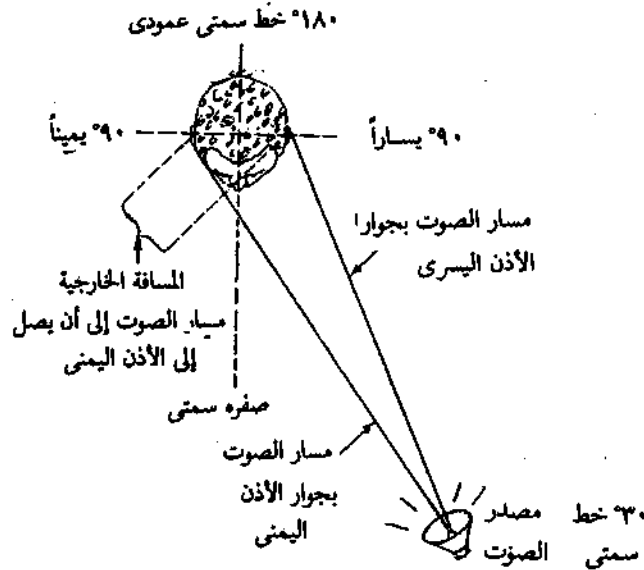 ١٨٠° خط سمتى عمودى
٩٠° يميناً
٩٠° يســاراً
مسار الصوت بجوار١
الأذن اليسرى
المسافة الخارجية
مسار الصوت إلى أن يصل
إلى الأذن اليمنى
صفره سمتى
مسار الصوت
بجوار الأذن
اليمنى
مصدر
الصوت
٣٠° خط
سمتى